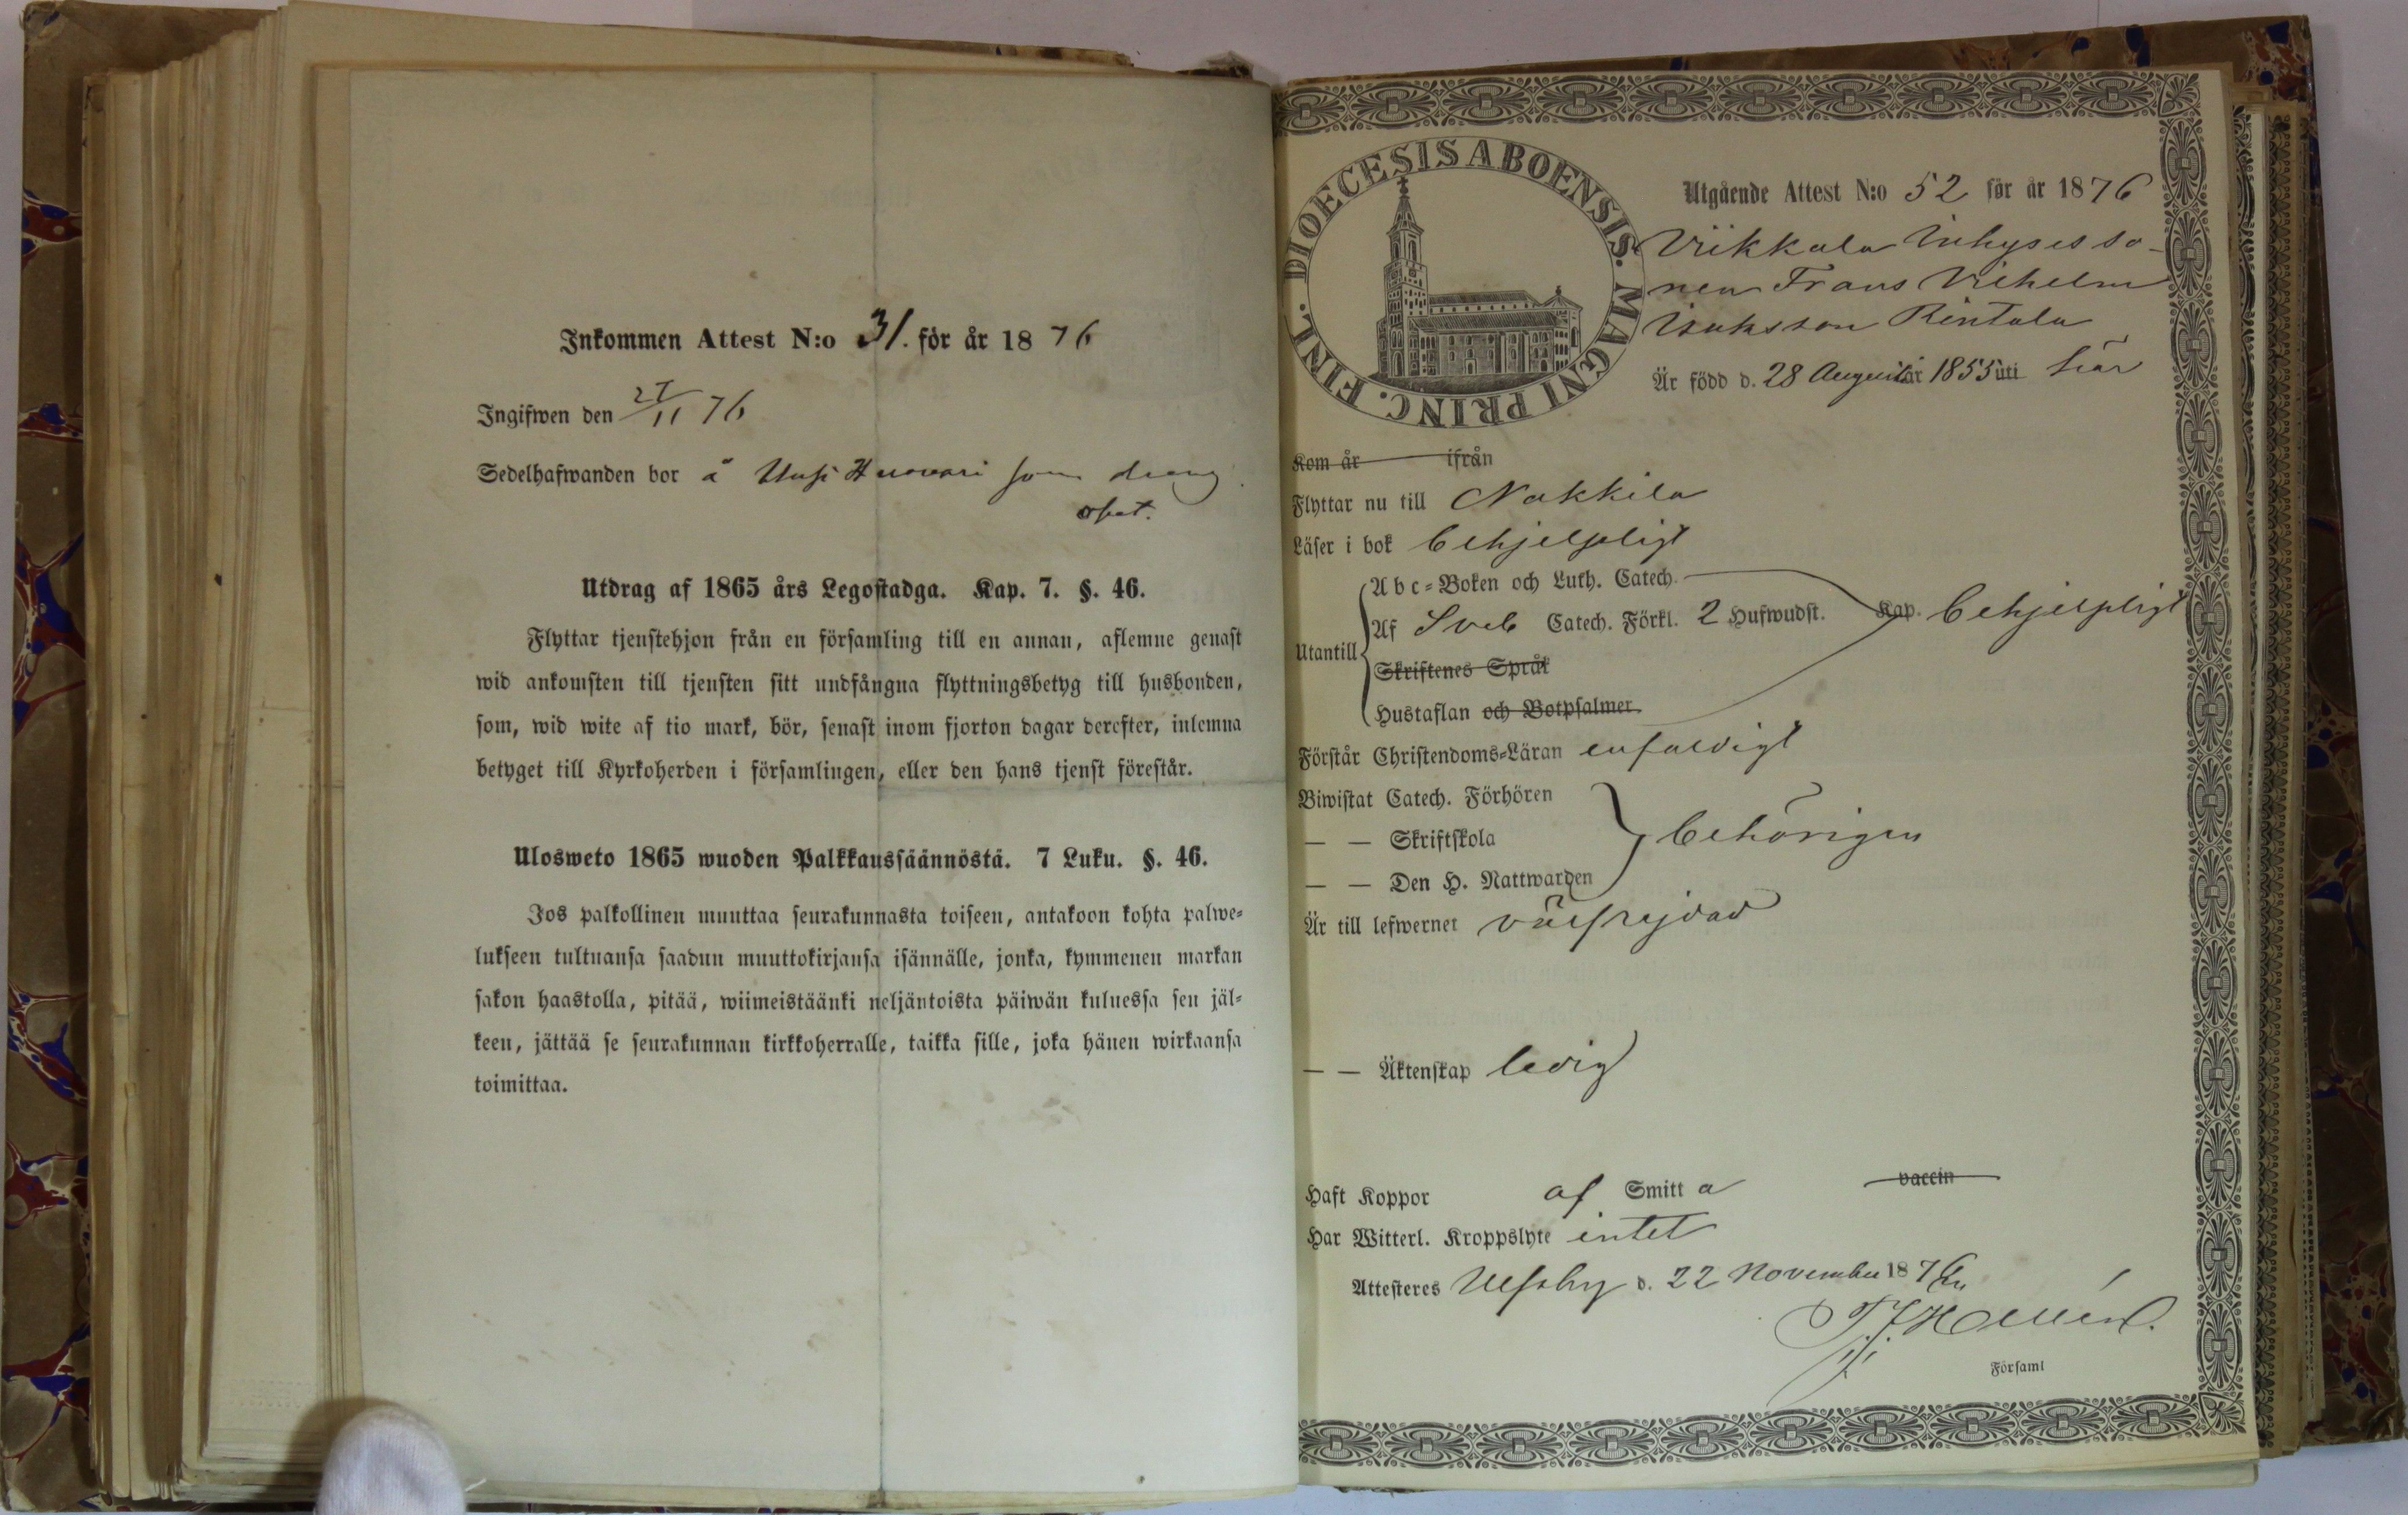 Inkommen Attest N:o 31. för år 1876
Ingifwen den 27/11 76
Sedelhafwanden bor å Uusi Huovari som dräng
Utdrag af 1865 års Legostadga. Kap. 7. §. 46.
Flyttar tjenstehjon från en församling till en annan, aflemne genast
wid ankomsten till tjensten sitt undfångna flyttningsbetyg till husbonden,
som, wid wite af tio mark, bör, senast inom fjorton dagar derefter, inlemna
betyget till Kyrkoherden i församlingen, eller den hans tjenst förestår.
Ulosweto 1865 wuoden Palkkaussäännöstä. 7 Luku. §. 46.
Jos palkollinen muuttaa seurakunnasta toiseen, antakoon kohta palwe=
lukseen tultuansa saadun muuttokirjansa isännälle, jonka, kymmenen markan
sakon haastolla, pitää, wiimeistäänki neljäntoista päiwän kuluessa sen jäl=
keen, jättää se seurakunnan kirkkoherralle, taikka sille, joka hänen wirkaansa
toimittaa.
DIOECESIS ABOENSIS. MAGNI PRINC. FINL.
Utgående Attest N:o 52 för år 1876
Viikkala Inhyses so-
nen Frans Vilhelm
Isaksson Rintala
Är född d. 28 Augusti år 1855 uti här
Kom år ifrån
Flyttar nu till Nakkila
Läser i bok behjelpligt
Utantill
Abc=Boken och Luth. Catech.
Af Sveb Catech. Förkl. 2 Hufwudst. Kap. behjelpligt
Skriftenes Språk
Hustaflan och Botpsalmer
Förstår Christendoms=Läran enfaldigt
Biwistat Catech. Förhören
— — Skriftskola behörigen
— — Den H. Nattwarden
Är till lefwernet välfrejdad
— — Äktenskap ledig
Haft Koppor af Smitta vaccin
Har Witterl. Kroppslyte intet
Attesteres Ulfsby d. 22 November 1876
Församl